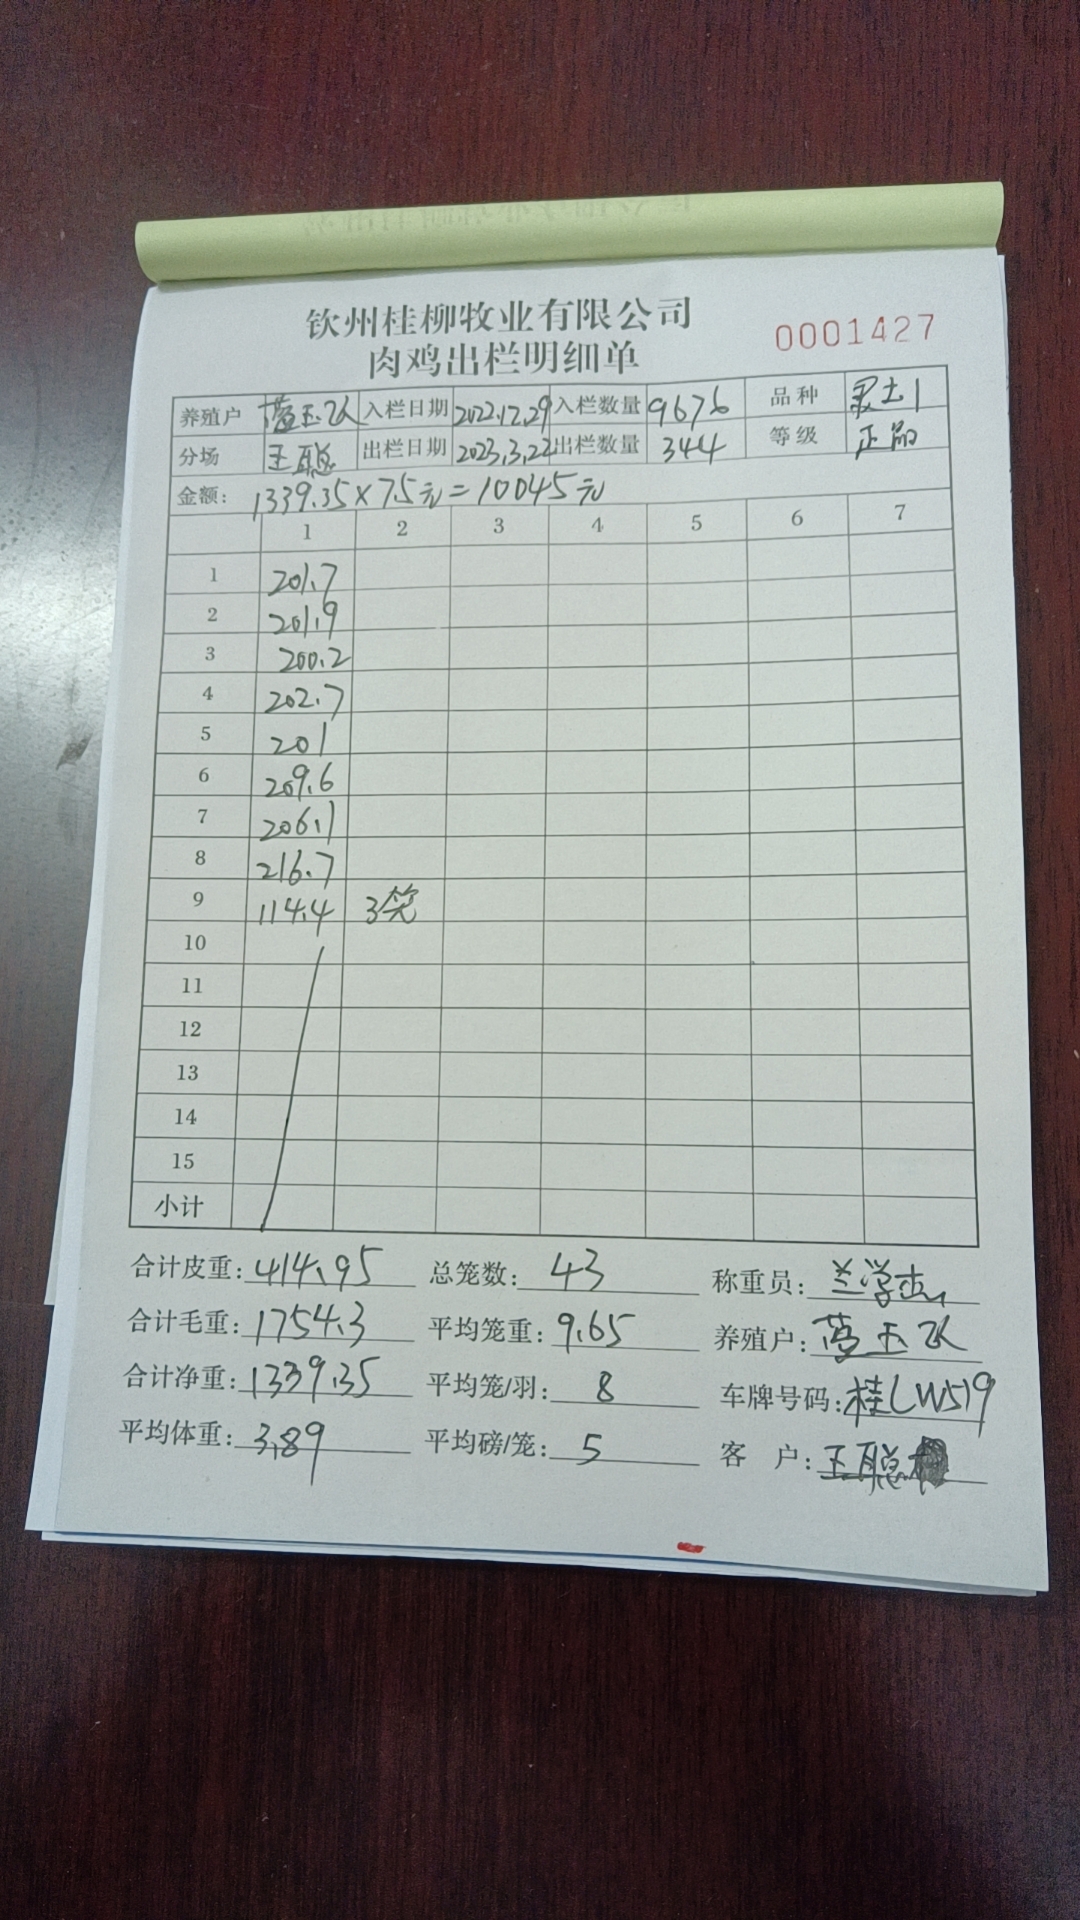 钦州桂柳牧业有限公司
肉鸡出栏明细单
0001427
养殖户 玉 入栏日期 2022.12.29 入栏数量 9676 品种 土1
分场 王聪 出栏日期 2023.3.22 出栏数量 344 等级 正品
金额: 1339.35×7.5元=10045元
1 2 3 4 5 6 7
1 201.7
2 201.9
3 200.2
4 202.7
5 201
6 209.6
7 206.1
8 216.7
9 114.4 3笼
10
11
12
13
14
15
小计
合计皮重: 414.95 总笼数: 43 称重员: 兰学
合计毛重: 1754.3 平均笼重: 9.65 养殖户: 玉
合计净重: 1339.35 平均笼/羽: 8 车牌号码: 桂LW519
平均体重: 3.89 平均磅/笼: 5 客 户: 王聪